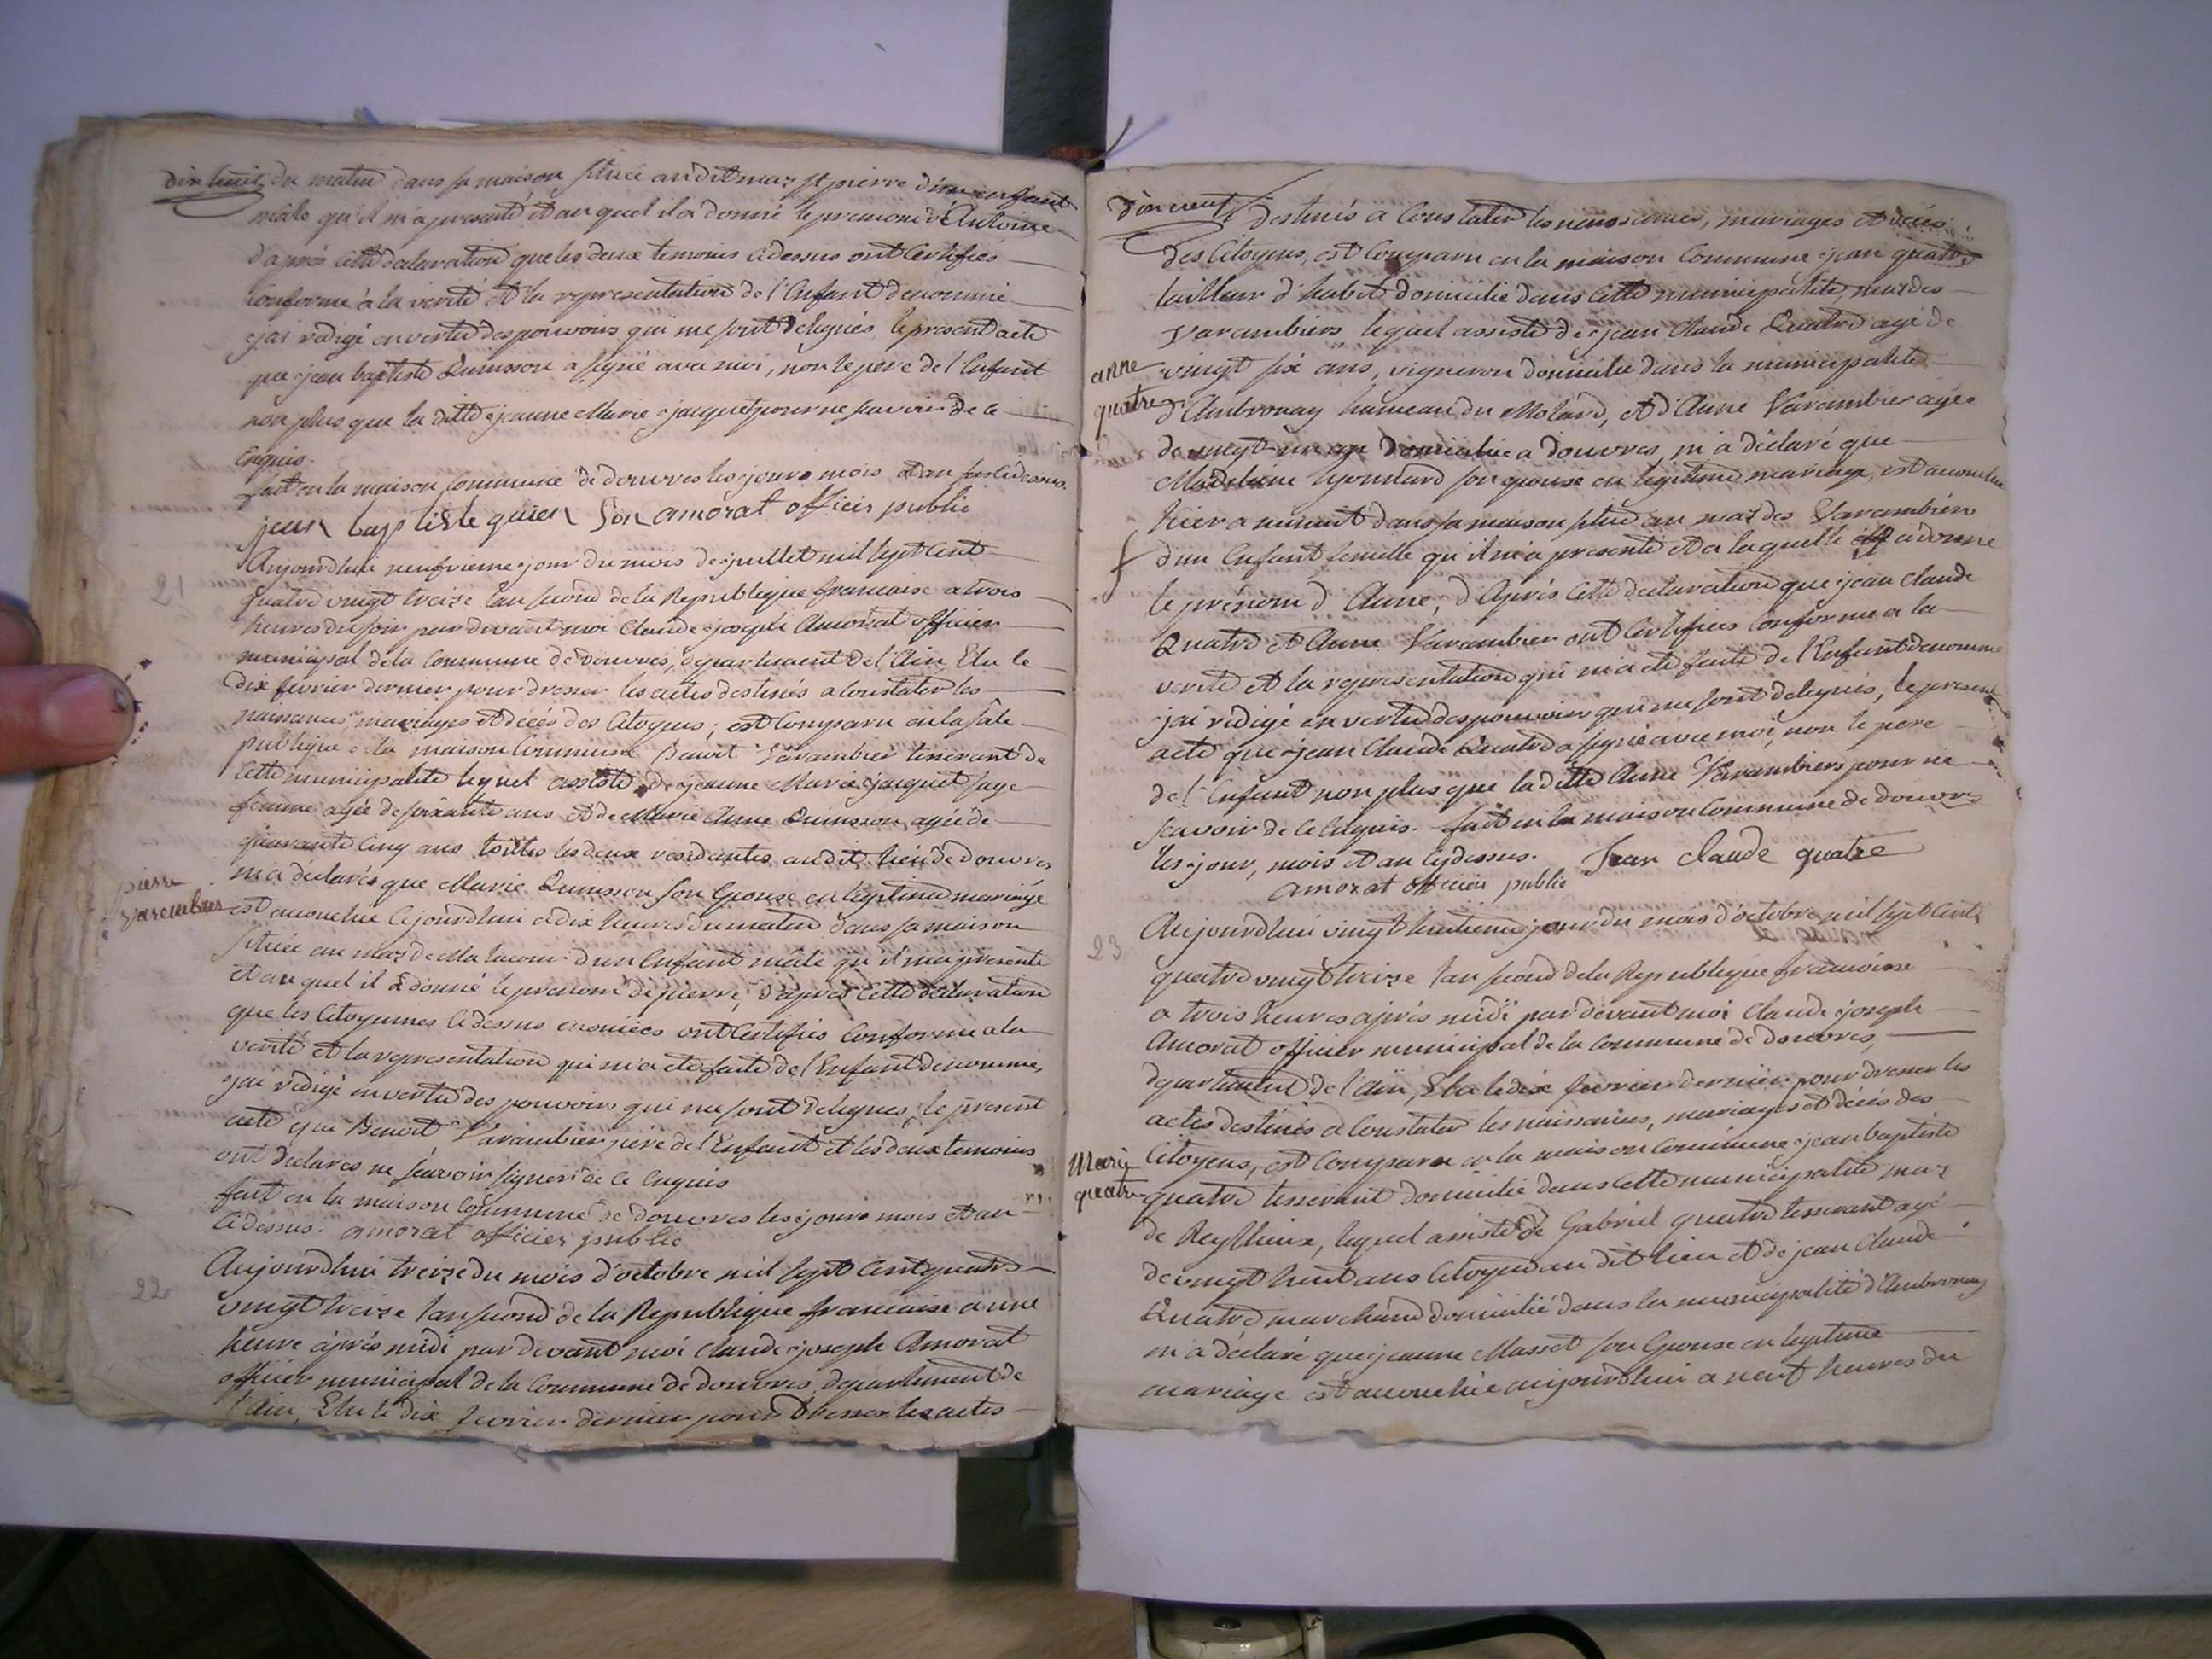 dix huit du matin dans sa maison situee audit mas st pierre d'un enfant
mâle qu'il m'a presenté et au quel il a donné le prenom d'Antoine
d'après cette declaration que les deux temoins cidessus ont Certifiés
conforme à la verité et la representation de l'Enfant denommé
j'ai redigé en vertu des pouvoirs qui me sont delegués, le present acte
que jean baptiste Quinsson a signé avec moi, non le pere de l'Enfant
non plus que la ditte jeanne Marie jacquet pour ne scavoir de ce
Enquis.
fait en la maison Commune de douvres les jours mois et an cidessus.
jean baptiste quien son amorat officier public
21
Aujourdhui neufvieme jour du mois de juillet mil sept cent
quatre vingt treize l'an second de la Republique francaise a trois
heures du soir par devant moi Claude joseph Amorat officier
municipal de la Commune de Douvres, departement de l'Ain, Elu le
dix fevrier dernier pour dresser les actes destinés a Constater les
naissances, mariages et décès des Citoyens; est Comparu en la sale
publique de la maison Commune Benoit Varambier tisserant de
cette municipalité lequel assisté de jeanne Marie jacquet sage
femme agée de soixante ans et de Marie Anne Quinsson agée de
quarante cinq ans toutes les deux residantes audit lieu de Douvres
m'a déclaré que Marie Quinsson son Epouse en legitime mariage
pierre
varembier
est accouchée cejourdhui a dix heures du matin dans sa maison
située au mas de Malacour d'un Enfant mâle qu'il m'a presenté
et au quel il a donné le prenom de pierre, d'après cette declaration
que les Citoyennes cidessus enoncées ont Certifiés Conforme a la
verité et la representation qui m'a eté faite de l'Enfant denommé,
j'ai redigé en vertu des pouvoirs qui me sont delegués, le present
acte que Benoit Varambier pere de l'Enfant et les deux temoins
ont declarés ne scavoir signer de ce Enquis
fait en la maison Commune de douvres les jours mois et an
cidessus. amorat officier public
22
Aujourdhui treize du mois d'octobre mil sept cent quatre
vingt treize l'an second de la Republique francaise a une
heure après midi par devant moi Claude joseph Amorat
officier municipal de la Commune de douvres, departement de
l'ain, Elu le dix fevrier dernier pour dresser les actes
destinés a Constater les naissances, mariages et décès
des Citoyens, est Comparu en la maison Commune jean quatre
tailleur d'habit domicilié dans cette municipalité, mas des
Varambiers lequel assisté de jean Claude Quatre agé de
anne
quatre
vingt six ans, vigneron domicilié dans la municipalité
d'Ambronay hameau du Molard, et d'Anne Varambier agée
de vingt un an domiciliée a douvres, m'a déclaré que
Madelaine son epouse en legitime mariage, est accouchée
hier a minuit dans sa maison situé au mas des Varambier
d'un Enfant femelle qu'il m'a presenté et a laquelle il a donné
le prénom d'Anne, d'Après cette declaration que jean claude
Quatre et Anne Varambier ont Certifiées Conforme a la
verité et la representation qui m'a eté faite de l'Enfant denommé
j'ai redigé en vertu des pouvoirs qui me sont delegués, le present
acte que jean Claude Quatre a signé avec moi, non le pere
de l'Enfant non plus que la ditte Anne Varambiers pour ne
scavoir de ce Enquis. fait en la maison Commune de douvres
les jour, mois et an cydessus. Jean claude quatre
amorat officier public
23
Aujourdhui vingt huitieme jour du mois d'octobre mil sept cent
quatre vingt treize l'an second de la Republique francoise
a trois heures après midi par devant moi Claude joseph
Amorat officier municipal de la Commune de douvres,
departement de l'ain, Elu le dix fevrier dernier pour dresser les
actes destinés a Constater les naissances, mariages et décès des
Marie
quatre
Citoyens, est Comparu en la maison Commune jean baptiste
quatre tisserant domicilié dans cette municipalité mas
de Reylleux, lequel assisté de Gabriel quatre tisserant agé
de vingt huit ans Citoyen au dit lieu et de jean Claude
Quatre marchand domicilié dans la municipalité d'Ambronay
m'a déclaré que jeanne Masset son Epouse en legitime
mariage est accouchée aujourdhui a neuf heures du